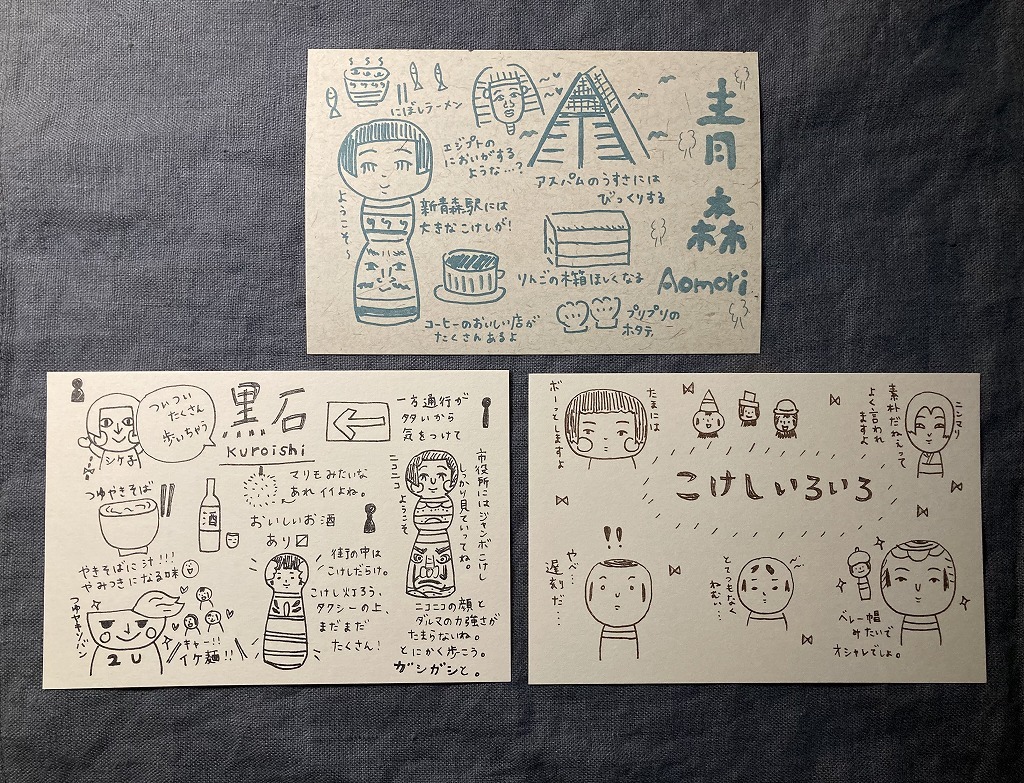 にぼしラーメン
エジプトの
においがする
ような…?
アスパムのうすさには
びっくりする
青森
Aomori
ようこそ〜
新青森駅には
大きなこけしが!
りんごの木箱ほしくなる
コーヒーのおいしい店が
たくさんあるよ
プリプリの
ホタテ。
ついつい
たくさん
歩いちゃう
シゲ子
黒石
Kuroishi
一方通行が
多いから
気をつけて
つゆやきそば
マリモみたいな
あれイイよね。
酒
おいしいお酒
あり〼
ニコニコ
ようこそ
市役所にはジャンボこけし
しっかり見ていってね。
やきそばに汁!!!
やみつきになる味
つゆヤキソバン
2U
キャー!!
イケ麺!!
街の中は
こけしだらけ。
こけし灯ろう、
タクシーの上、
まだまだ
たくさん!
ニコニコの顔と
ダルマの力強さが
たまらないね。
とにかく歩こう。
ガシガシと。
たまには
ボーっとしますよ
素朴だねぇって
よく言われ
ますよ
ニンマリ
こけしいろいろ
!!
やべ…
遅刻だ…
とてつもなく
ねむい…
ベレー帽
みたいで
オシャレでしょ。